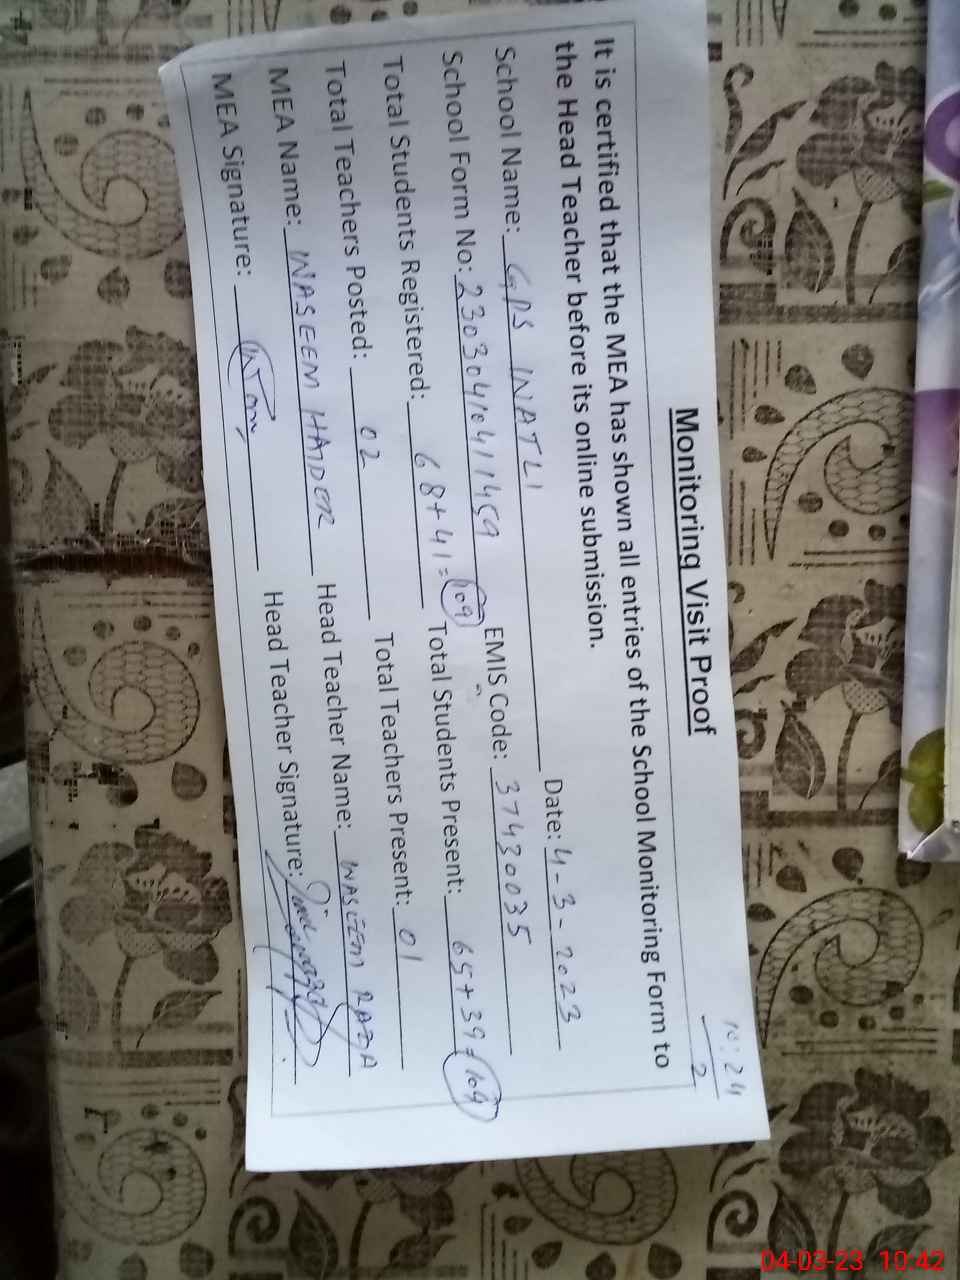 10:24
2
Monitoring Visit Proof
It is certified that the MEA has shown all entries of the School Monitoring Form to
the Head Teacher before its online submission.
School Name: GPS INATLI Date: 4-3-2023
School Form No: 23030410411459 EMIS Code: 37430035
Total Students Registered: 68+41=109 Total Students Present: 65+39=104
Total Teachers Posted: 02 Total Teachers Present: 01
MEA Name: WASEEM HAIDER Head Teacher Name: WASEEM RAZA
MEA Signature: Head Teacher Signature:
04-03-23 10:42